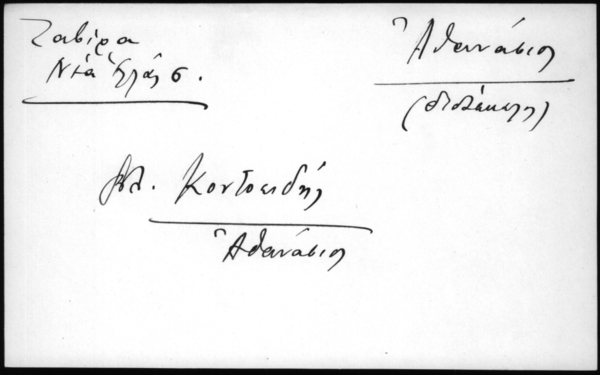 Ζαβίρα
Νέα Ἑλλάς σ.
Ἀθανάσιος
(διδάσκαλος)
βλ. Κοντοειδής
Ἀθανάσιος